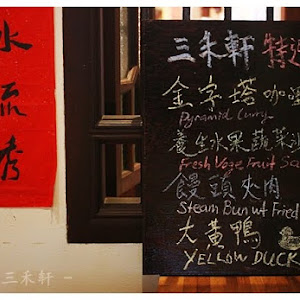 水
流
秀
三禾軒 特
金字塔咖
Pyramid Curry
養生水果蔬菜
Fresh Vege Fruit Sa
饅頭夾肉
Steam Bun wt Fried
大黃鴨
YELLOW DUCK
三禾軒 -